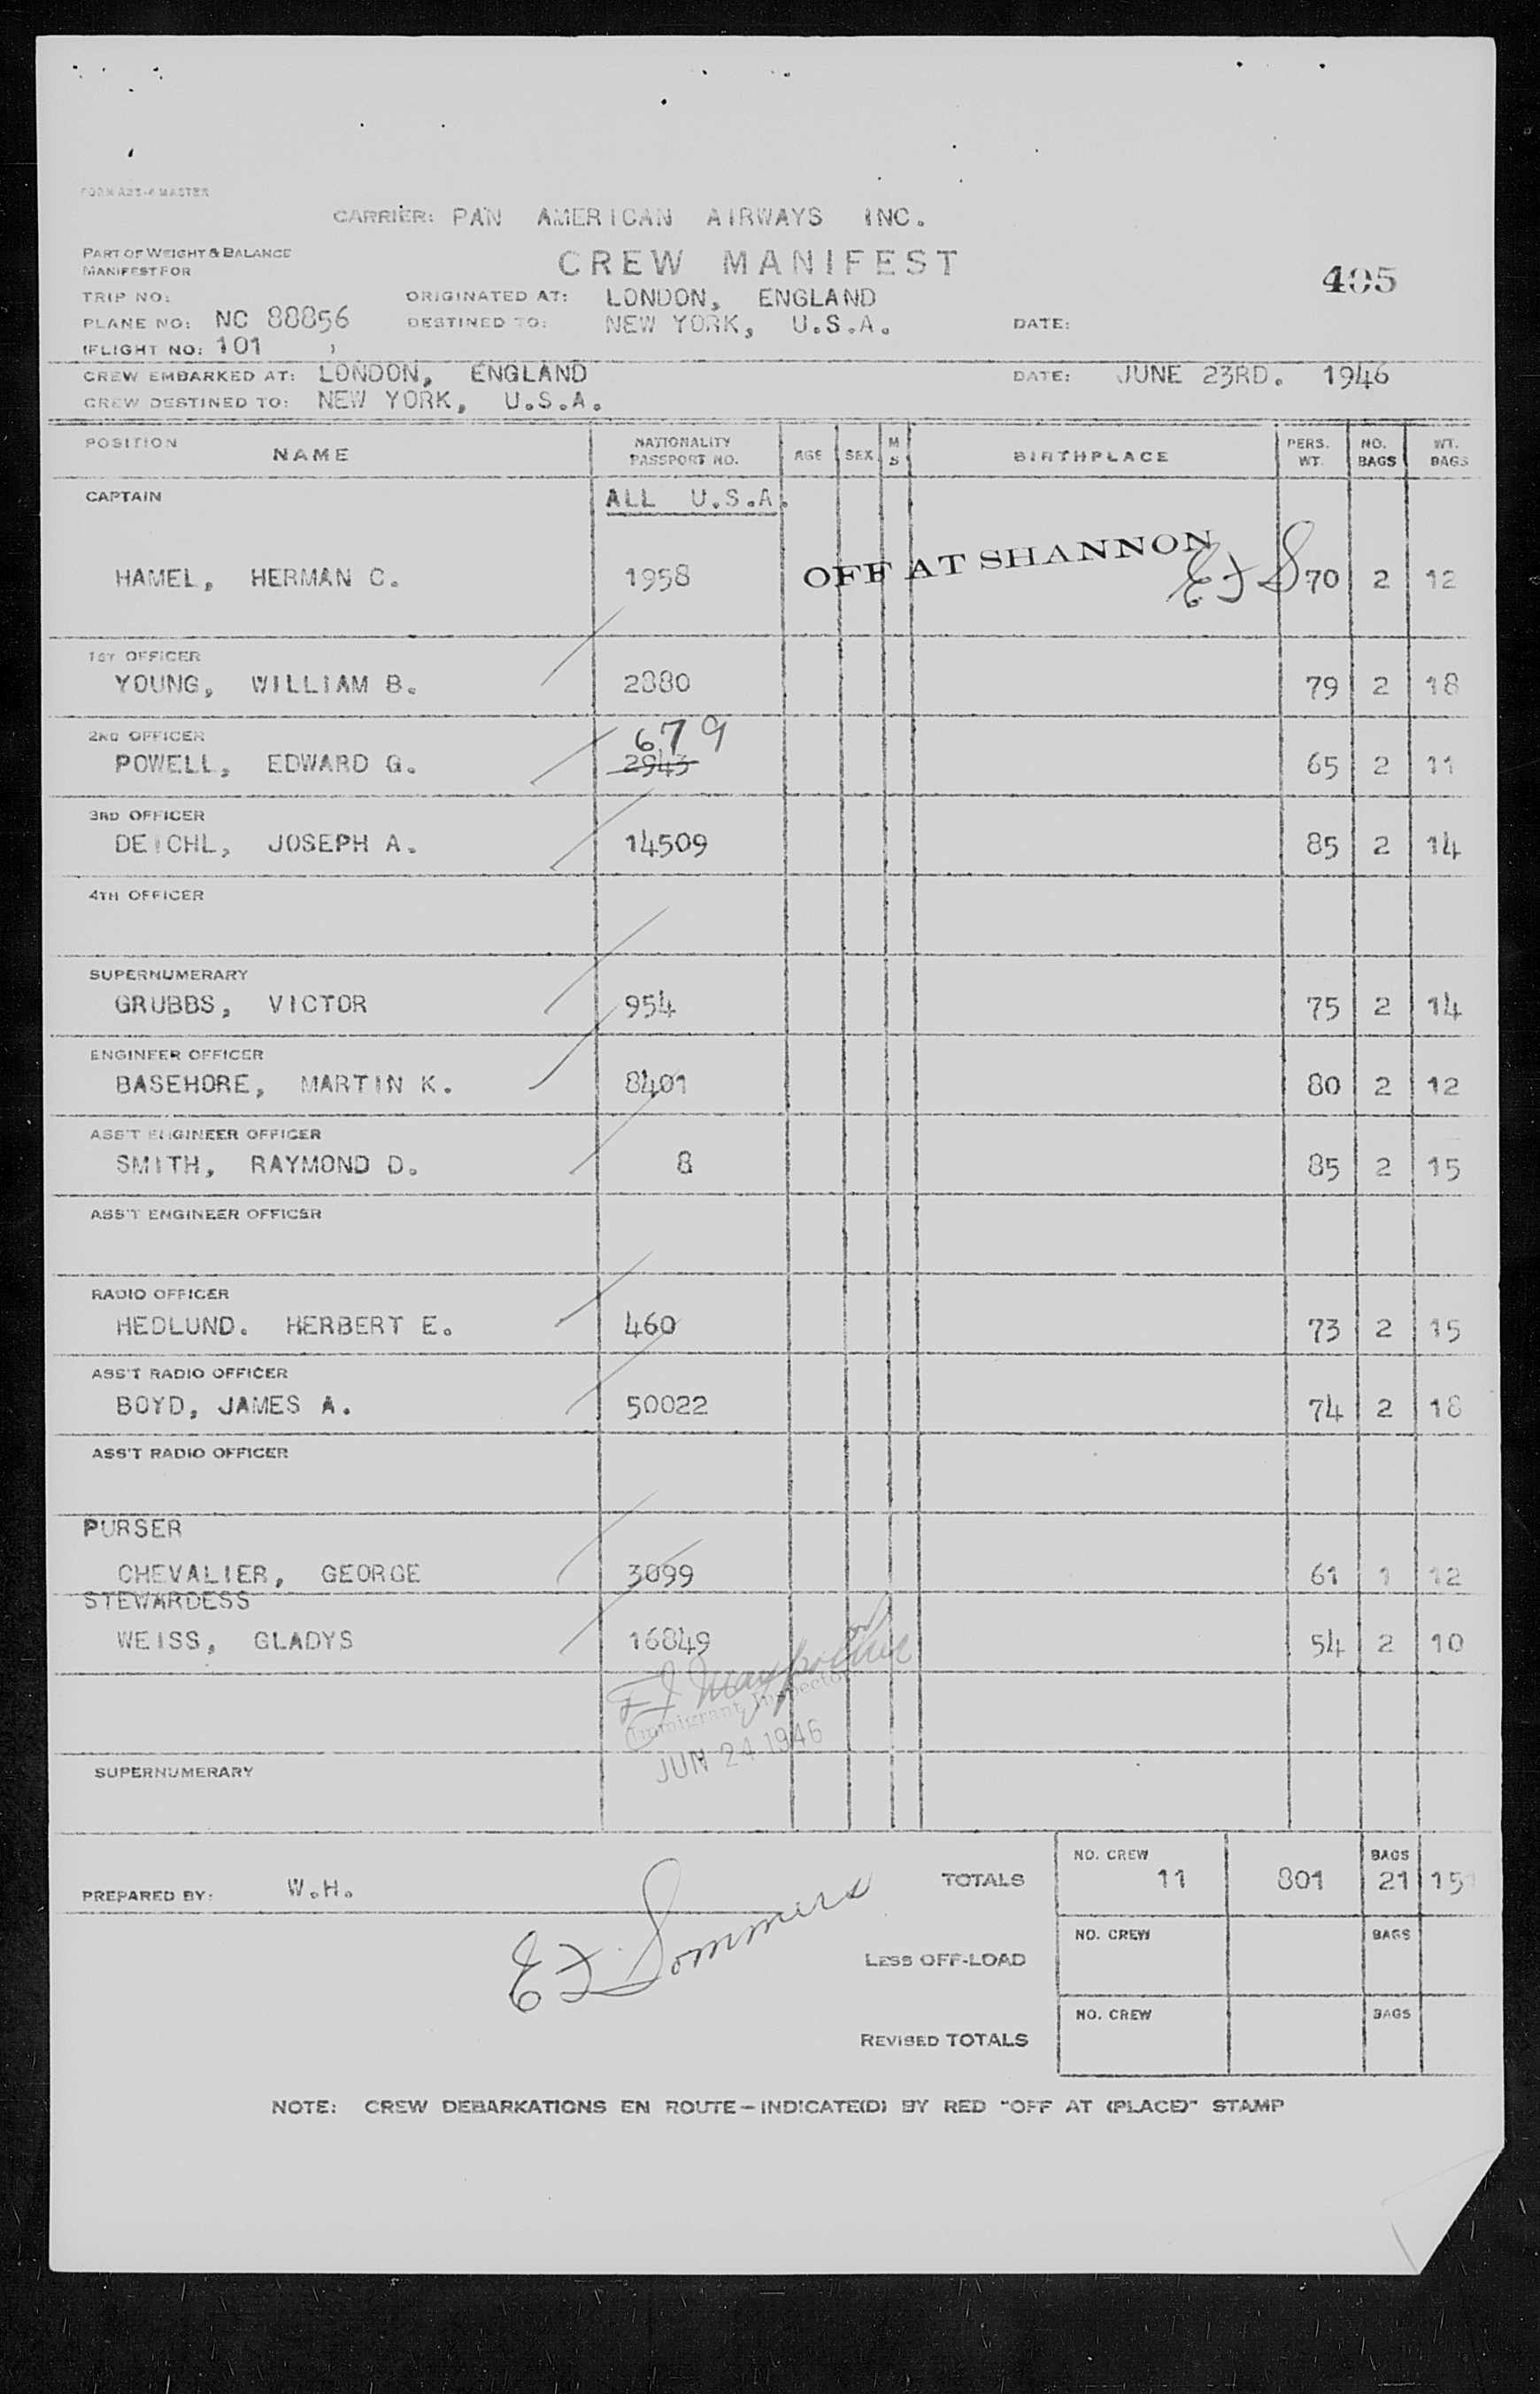 FORM A23-4 MASTER
CARRIER: PAN AMERICAN AIRWAYS INC.
PART OF WEIGHT & BALANCE
MANIFEST FOR
CREW MANIFEST
405
TRIP NO:
ORIGINATED AT: LONDON, ENGLAND
PLANE NO: NC 88856
DESTINED TO: NEW YORK, U.S.A.
DATE:
(FLIGHT NO: 101 )
CREW EMBARKED AT: LONDON, ENGLAND
DATE: JUNE 23RD. 1946
CREW DESTINED TO: NEW YORK, U.S.A.
POSITION NAME NATIONALITY PASSPORT NO. AGE SEX M S BIRTHPLACE PERS. WT. NO. BAGS WT. BAGS
CAPTAIN ALL U.S.A.
OFF AT SHANNON
HAMEL, HERMAN C. 1958 EFS 70 2 12
1ST OFFICER
YOUNG, WILLIAM B. 2880 79 2 18
2ND OFFICER 679
POWELL, EDWARD G. 2943 65 2 11
3RD OFFICER
DEICHL, JOSEPH A. 14509 85 2 14
4TH OFFICER
SUPERNUMERARY
GRUBBS, VICTOR 954 75 2 14
ENGINEER OFFICER
BASEHORE, MARTIN K. 8401 80 2 12
ASS'T ENGINEER OFFICER
SMITH, RAYMOND D. 8 85 2 15
ASS'T ENGINEER OFFICER
RADIO OFFICER
HEDLUND. HERBERT E. 460 73 2 15
ASS'T RADIO OFFICER
BOYD, JAMES A. 50022 74 2 18
ASS'T RADIO OFFICER
PURSER
CHEVALIER, GEORGE 3099 61 1 12
STEWARDESS
WEISS, GLADYS 16849 54 2 10
Immigrant Inspector
JUN 24 1946
SUPERNUMERARY
PREPARED BY: W.H.
TOTALS NO. CREW 11 801 BAGS 21 151
EF Sommers
LESS OFF-LOAD NO. CREW BAGS
REVISED TOTALS NO. CREW BAGS
NOTE: CREW DEBARKATIONS EN ROUTE—INDICATE(D) BY RED "OFF AT (PLACE)" STAMP